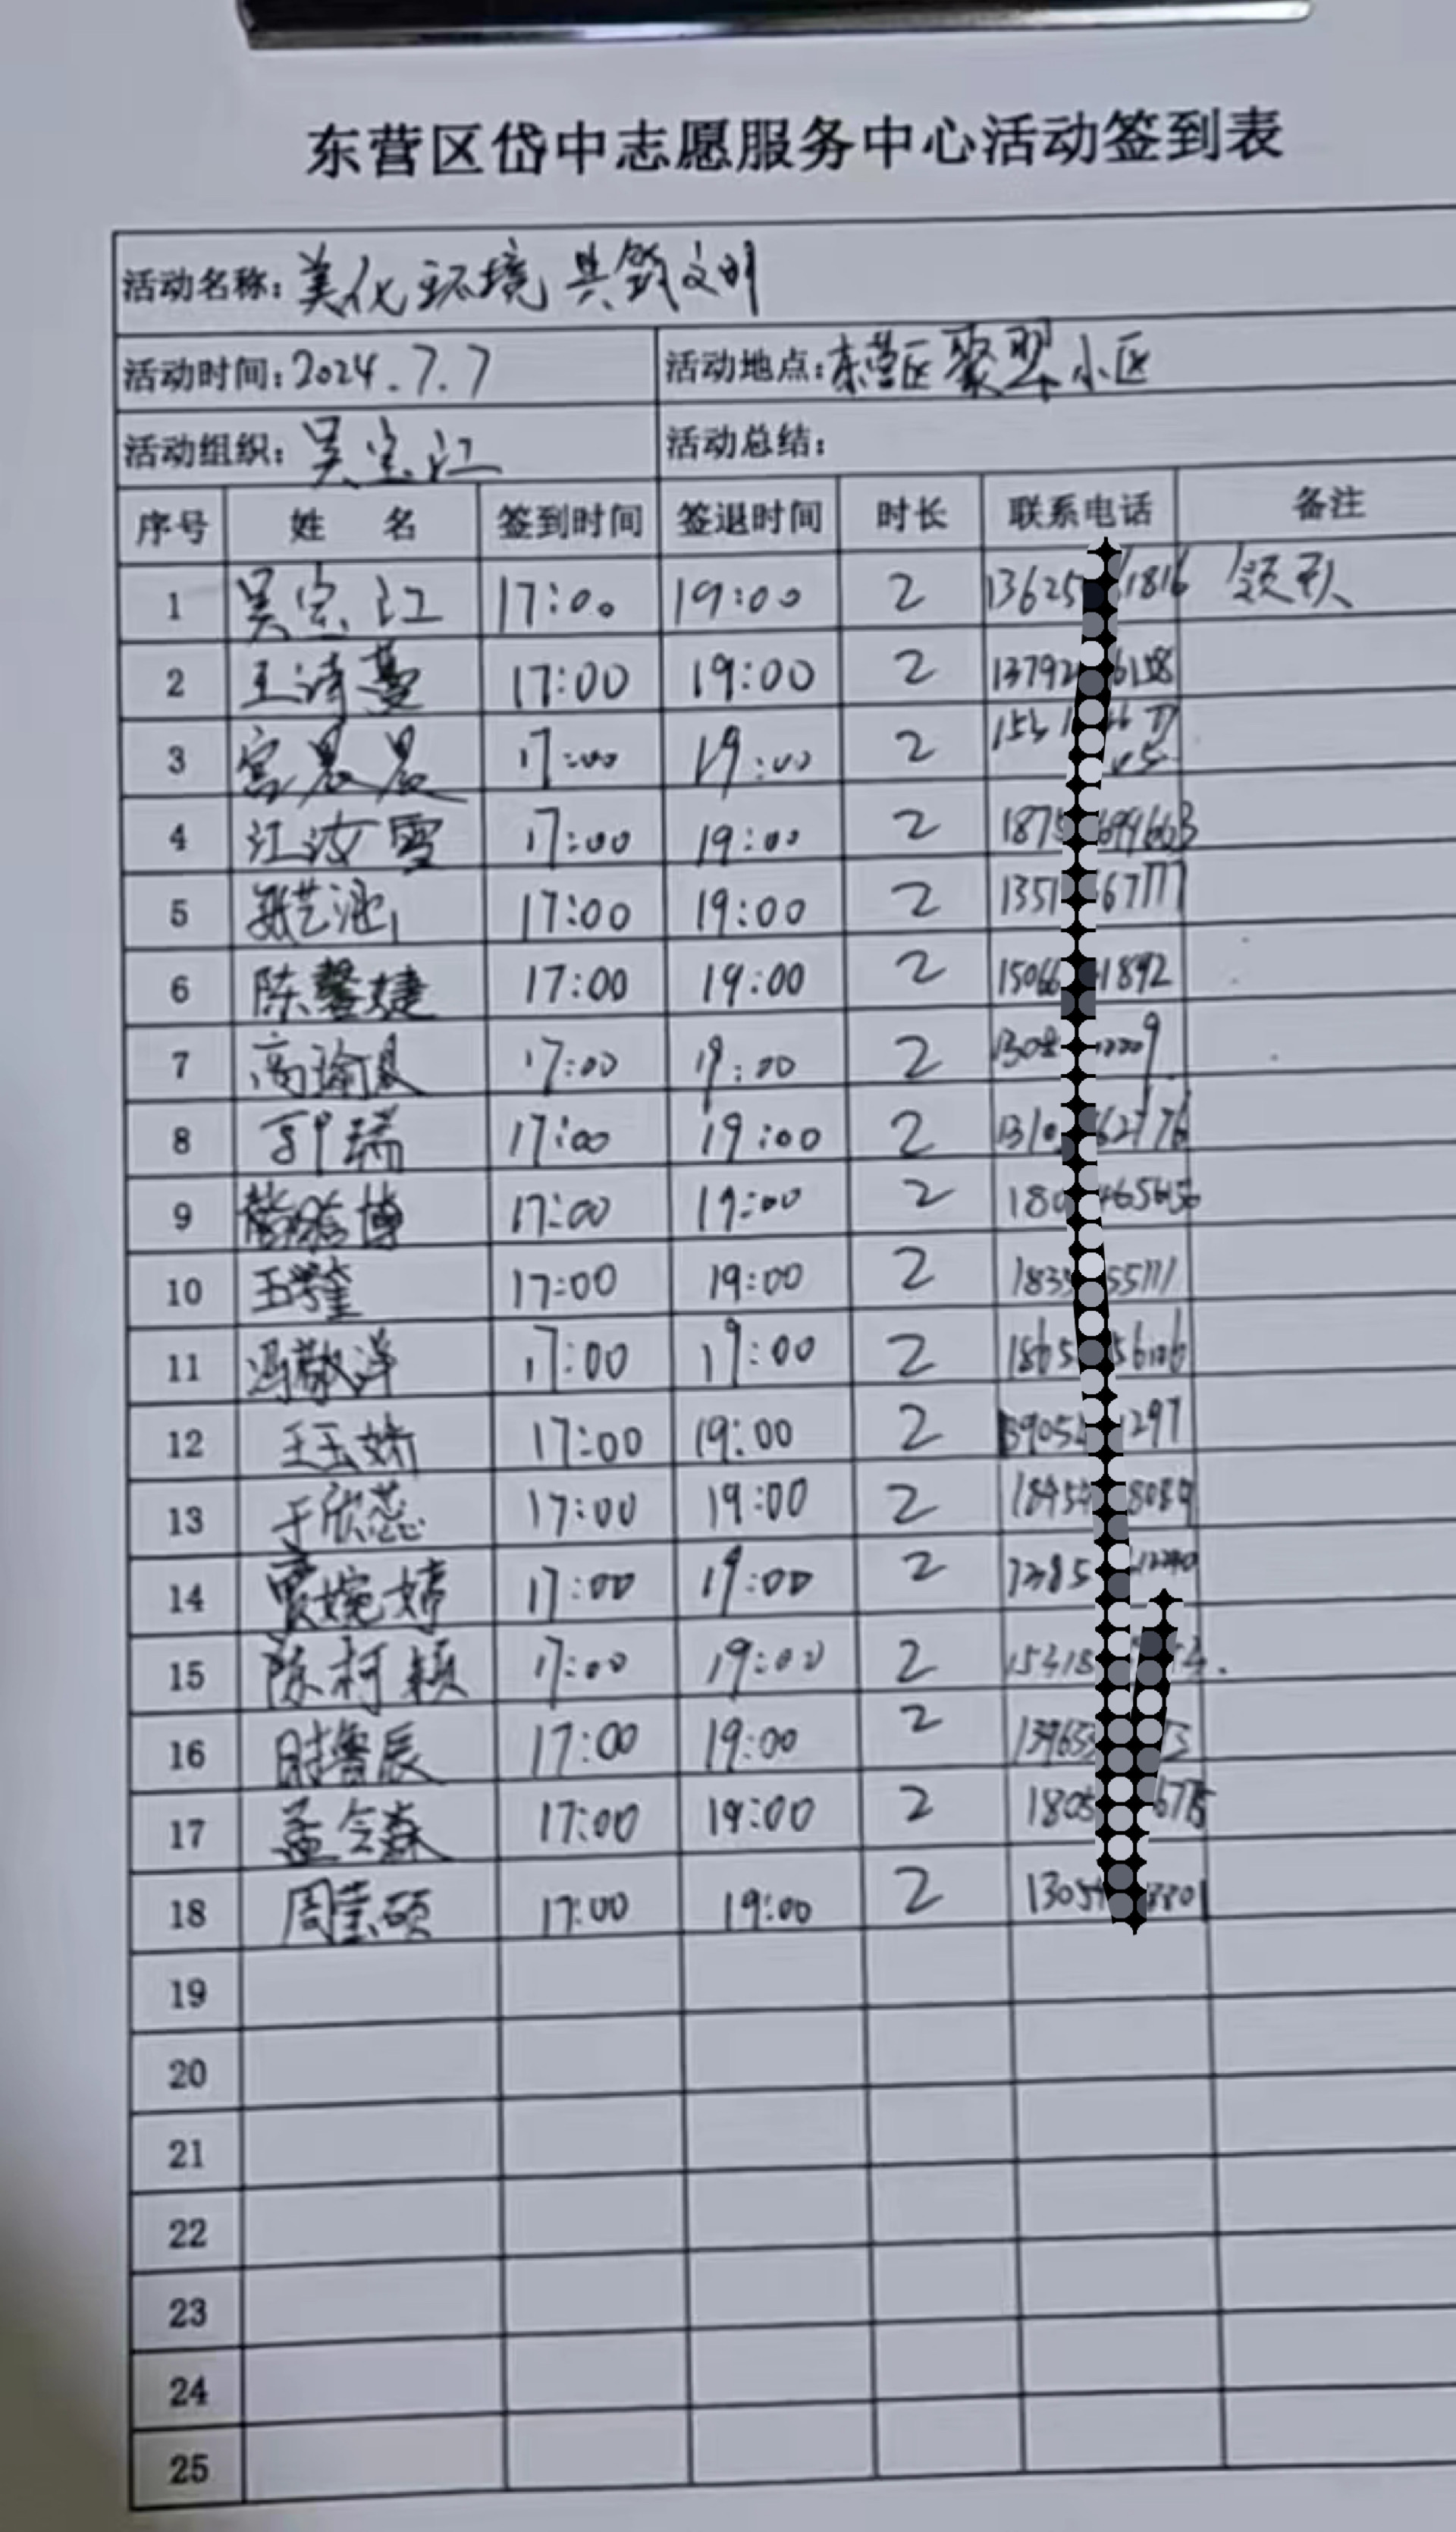 东营区岱中志愿服务中心活动签到表
活动名称：美化环境 共筑文明
活动时间：2024.7.7 活动地点：东营区聚翠小区
活动组织：吴宝江 活动总结：
序号 姓 名 签到时间 签退时间 时长 联系电话 备注
1 吴宝江 17:00 19:00 2 13625 1816 领队
2 王诗蔓 17:00 19:00 2 13792 6128
3 宫晨晨 17:00 19:00 2
4 江汝雪 17:00 19:00 2 1875 699663
5 17:00 19:00 2 1351 67777
6 陈馨婕 17:00 19:00 2 15066 1892
7 高瑜晨 17:00 19:00 2 1308
8 瑞 17:00 19:00 2 1310 62776
9 博 17:00 19:00 2 180 465656
10 17:00 19:00 2 183 55111
11 冯敬洋 17:00 19:00 2 1865 56106
12 王玉娇 17:00 19:00 2 15905 1297
13 于欣蕊 17:00 19:00 2 1895 8089
14 贾婉婷 17:00 19:00 2
15 陈柯颖 17:00 19:00 2 15318
16 时鲁辰 17:00 19:00 2 13965
17 孟令森 17:00 19:00 2 1805 6775
18 周莹硕 17:00 19:00 2 1305 8801
19
20
21
22
23
24
25